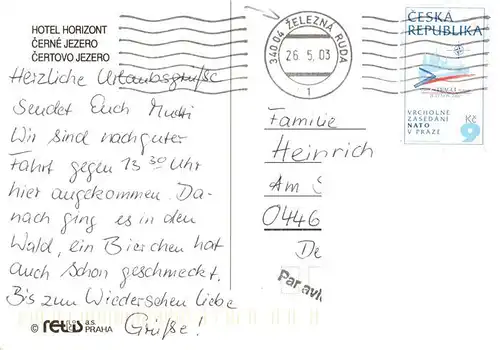 HOTEL HORIZONT
ČERNÉ JEZERO
ČERTOVO JEZERO
Herzliche Urlaubsgrüße
sendet Euch Mutti
Wir sind nach guter
Fahrt gegen 13 30 Uhr
hier angekommen. Da-
nach ging es in den
Wald, ein Bierchen hat
auch schon geschmeckt.
Bis zum Wiedersehen liebe
Grüße!
© a.s.
PRAHA
340 04 ŽELEZNÁ RUDA
26.5.03
1
ČESKÁ
REPUBLIKA
VRCHOLNÉ
ZASEDÁNÍ
NATO
V PRAZE
9 Kč
Familie
Heinrich
Am S
0446
De
Par avi